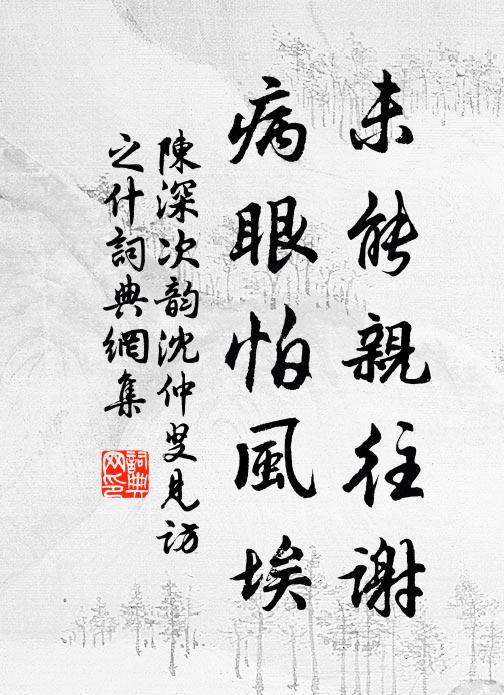 未能親往謝
病眼怕風埃
陳深次韵沈仲叟見访
之什詞典網集
詞典
网印